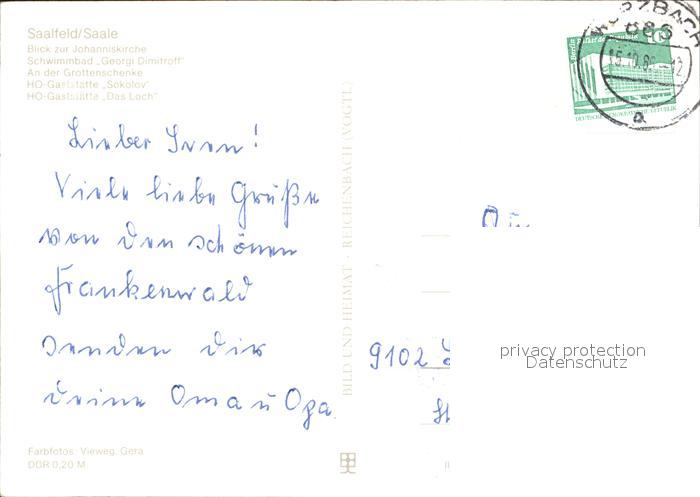 Saalfeld/Saale
Blick zur Johanniskirche
Schwimmbad „Georgi Dimitroff"
An der Grottenschenke
HO-Gaststätte „Sokolov"
HO-Gaststätte „Das Loch"
Lieber Sven!
Viele liebe Grüße
von den schönen
Frankenwald
senden dir
deine Oma u Opa.
Farbfotos: Vieweg, Gera
DDR 0,20 M
BILD UND HEIMAT · REICHENBACH (VOGTL)
WURZBACH
686
a
DEUTSCHE DEMOKRATISCHE REPUBLIK
An
9102
privacy protection
Datenschutz